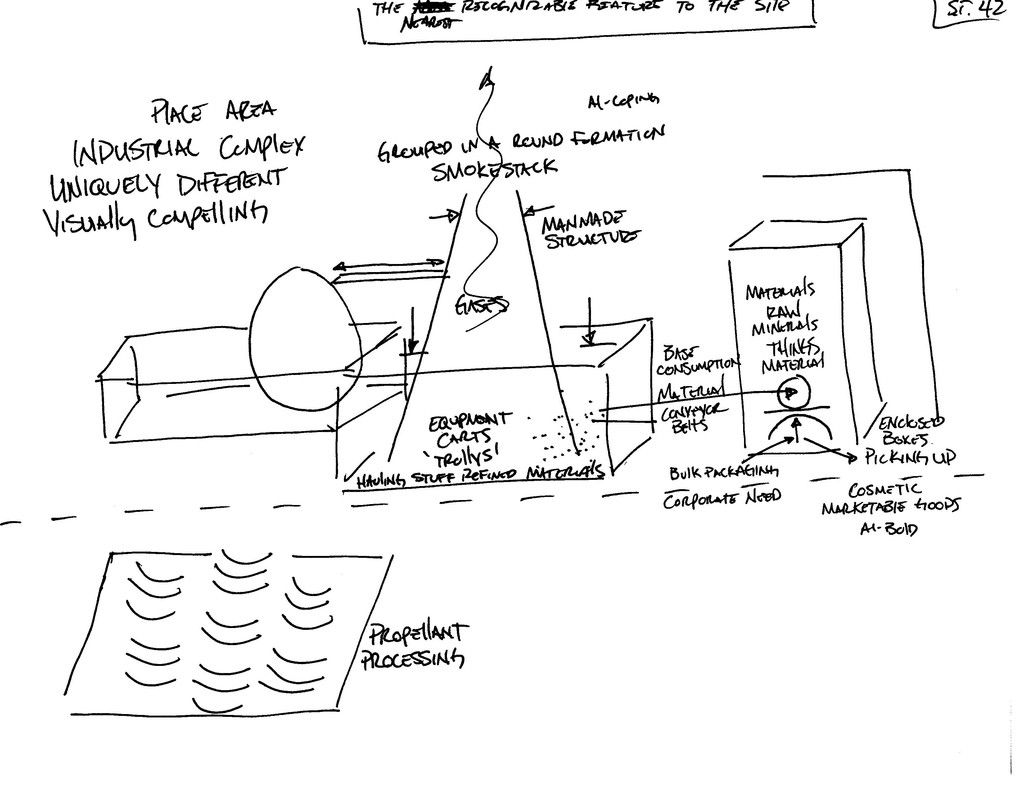 THE RECOGNIZABLE FEATURE TO THE SITE
NEAREST
ST. 42
PLACE AREA
INDUSTRIAL COMPLEX
UNIQUELY DIFFERENT
VISUALLY COMPELLING
GROUPED IN A ROUND FORMATION
SMOKESTACK
MANMADE
STRUCTURE
GASES
EQUIPMENT
CARTS
'TROLLYS'
HAULING STUFF REFINED MATERIALS
BASE
CONSUMPTION
MATERIAL
CONVEYOR
BELTS
MATERIALS
RAW
MINERALS
THINGS
MATERIAL
ENCLOSED
BOXES
PICKING UP
BULK PACKAGING
CORPORATE NEED
COSMETIC
MARKETABLE GOODS
PROPELLANT
PROCESSING